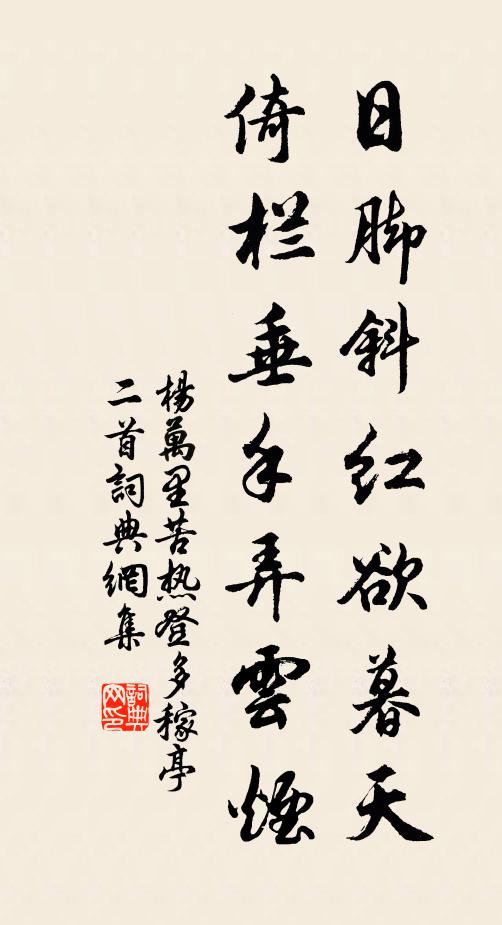 日脚斜红欲暮天
倚栏垂手弄雲煙
楊萬里苦热登多稼亭
二首詞典網集
詞典网印